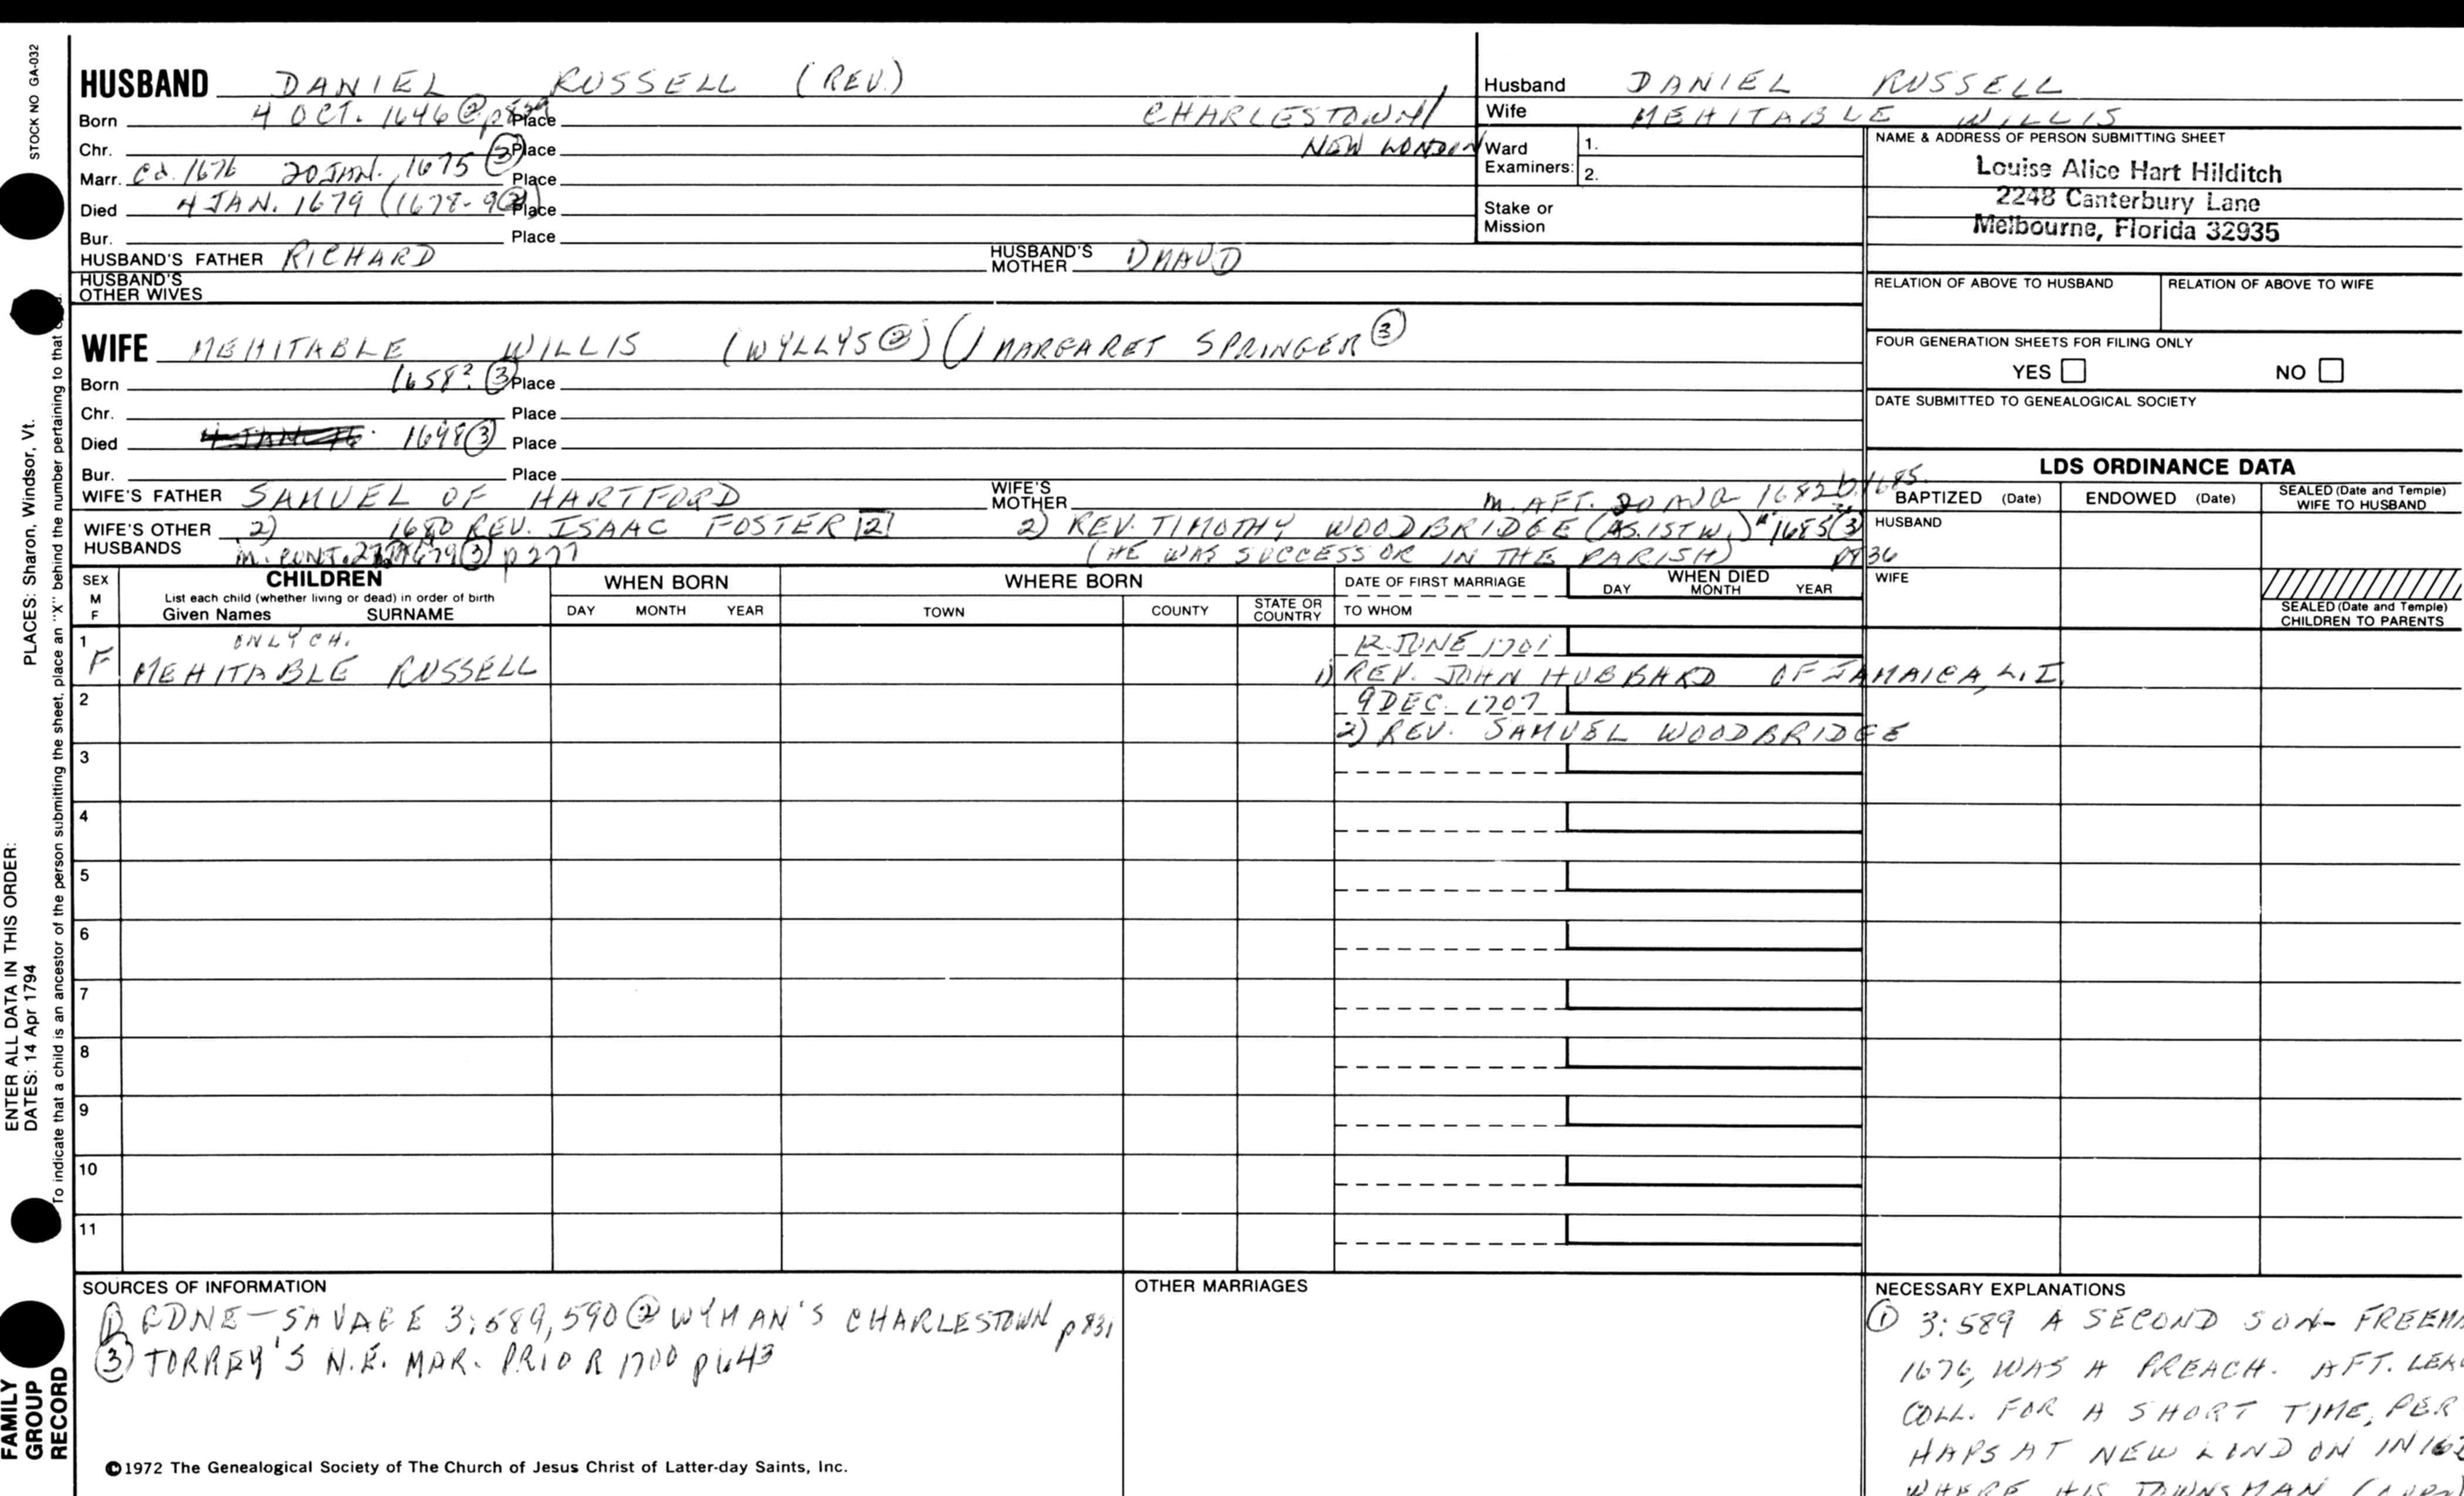 STOCK NO GA-032
HUSBAND DANIEL RUSSELL (REV.)
Born 4 OCT. 1646 Place CHARLESTOWN/
Chr. Place NEW LONDON
Marr. Cd. 1676 20 JAN. 1675 (3) Place
Died 4 JAN. 1679 (1678-9 Place
Bur. Place
HUSBAND'S FATHER RICHARD HUSBAND'S MOTHER
HUSBAND'S OTHER WIVES
Husband DANIEL RUSSELL
Wife MEHITABLE WILLIS
Ward Examiners: 1.
2.
Stake or Mission
NAME & ADDRESS OF PERSON SUBMITTING SHEET
Louise Alice Hart Hilditch
2248 Canterbury Lane
Melbourne, Florida 32935
RELATION OF ABOVE TO HUSBAND RELATION OF ABOVE TO WIFE
FOUR GENERATION SHEETS FOR FILING ONLY
YES NO
DATE SUBMITTED TO GENEALOGICAL SOCIETY
WIFE MEHITABLE WILLIS (WYLLYS (2)) (/ MARGARET SPRINGER (3)
Born 1658? (3) Place
Chr. Place
Died 1698 (3) Place
Bur. Place
WIFE'S FATHER SAMUEL OF HARTFORD WIFE'S MOTHER
m. AFT. 20 1682 b. 1685
WIFE'S OTHER HUSBANDS 2) 1680 REV. ISAAC FOSTER [2] 2) REV. TIMOTHY WOODBRIDGE (AS. 1ST W.) 1685 (3)
(3) p 277 (HE WAS SUCCESSOR IN THE PARISH)
LDS ORDINANCE DATA
BAPTIZED (Date) ENDOWED (Date) SEALED (Date and Temple) WIFE TO HUSBAND
HUSBAND
WIFE
SEALED (Date and Temple) CHILDREN TO PARENTS
SEX M F
CHILDREN
List each child (whether living or dead) in order of birth
Given Names SURNAME
WHEN BORN
DAY MONTH YEAR
WHERE BORN
TOWN COUNTY STATE OR COUNTRY
DATE OF FIRST MARRIAGE
TO WHOM
WHEN DIED
DAY MONTH YEAR
1 ONLY CH. 12 JUNE 1701
F MEHITABLE RUSSELL 1) REV. JOHN HUBBARD OF JAMAICA, L.I.
2 9 DEC. 1707
2) REV. SAMUEL WOODBRIDGE
3
4
5
6
7
8
9
10
11
SOURCES OF INFORMATION
(1) GDNE - SAVAGE 3:589,590 (2) WYMAN'S CHARLESTOWN p 831
(3) TORREY'S N.E. MAR. PRIOR 1700 p 643
©1972 The Genealogical Society of The Church of Jesus Christ of Latter-day Saints, Inc.
OTHER MARRIAGES
NECESSARY EXPLANATIONS
(1) 3:589 A SECOND SON- FREEM
1676, WAS A PREACH. AFT. LEA
COLL. FOR A SHORT TIME, PER
HAPS AT NEW LONDON IN
WHERE HIS TOWNSMAN
PLACES: Sharon, Windsor, Vt.
ENTER ALL DATA IN THIS ORDER:
DATES: 14 Apr 1794
To indicate that a child is an ancestor of the person submitting the sheet, place an "X" behind the number pertaining to that
FAMILY GROUP RECORD